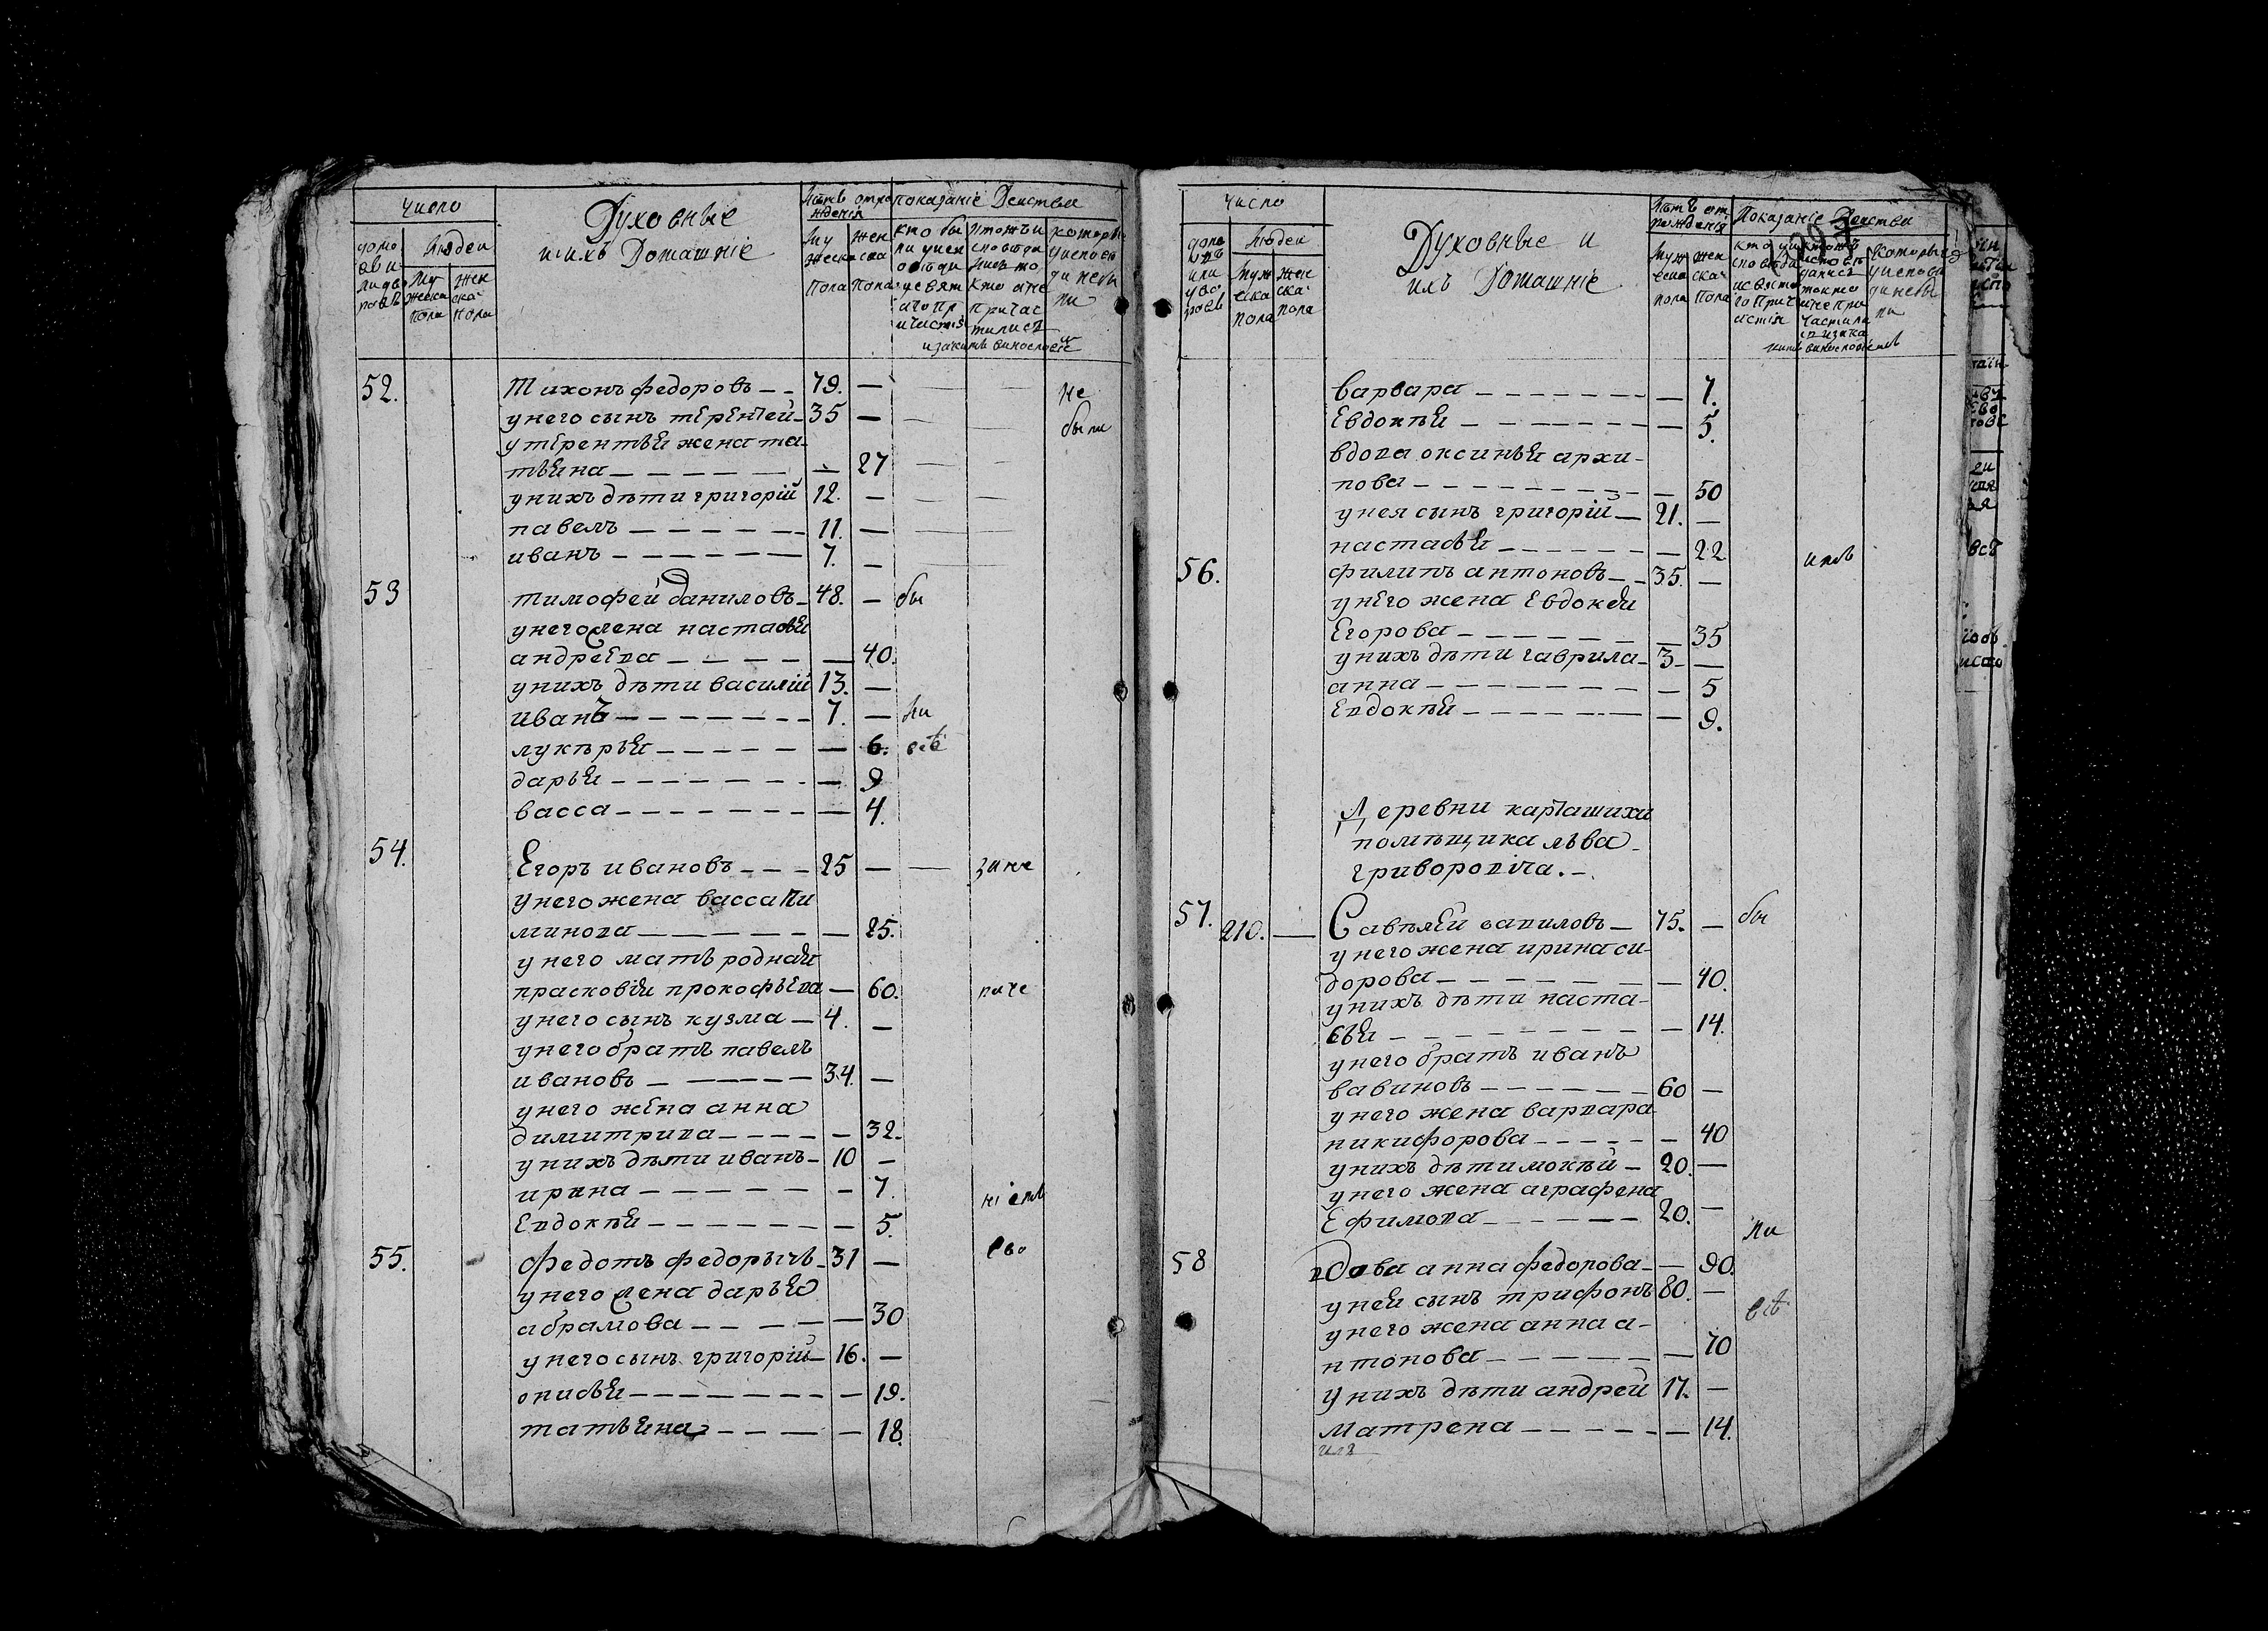 число
Духовные
и ихъ Домашніе
Лѣтъ отро
жденія
показаніе Действа
домо
въ и
ли дво
ровъ
Людеи
Му
жеска
пола
Жен
ска
пола
Му
жеска
пола
Жен
ска
пола
52.
Тихонъ федоровъ — 79. —
у него сынъ терентей — 35 —
у терентья жена та-
тьяна — — 27
у нихъ дѣти григорій 12. —
павелъ — 11. —
иванъ — 7. —
не
были
53
тимофей даниловъ — 48. — бы
у него жена настасья
андреева — — 40.
у нихъ дѣти василій 13. —
иванъ — 7. — ли
лукерья — — 6. всѣ
дарья — — 9
васса — — 4.
54.
Егоръ ивановъ — 25 —
у него жена васса пи
минова — — 25.
у него мать родная
прасковія прокофьева — 60.
у него сынъ кузма — 4. —
у него братъ павелъ
ивановъ — 34. —
у него жена анна
димитрива — — 32.
у нихъ дѣти иванъ — 10 —
ирина — — 7.
Евдокѣя — — 5.
55.
Федотъ федорычъ — 31 —
у него жена дарья
абрамова — — 30
у него сынъ григорій — 16. —
онисья — — 19.
татьяна — — 18.
число
Духовные и
ихъ Домашніе
Лѣтъ от
рожденія
Показаніе Действа
Людеи
Муж
еска
пола
Жен
ска
пола
Муж
еска
пола
Жен
ска
пола
варвара — — 7.
Евдокѣя — — 5.
вдова оксинья архи-
пова — — 50
у нея сынъ григорій — 21. —
настасья — — 22
56.
филипъ антоновъ — 35. —
у него жена Евдокѣя
Егорова — — 35
у нихъ дѣти гаврила — 3 —
анна — — 5
Евдокѣя — — 9.
Деревни карташихи
помѣщика льва
григоровича.
57. 210. —
Савѣлей вавиловъ — 75. — бы
у него жена ирина си-
дорова — — 40.
у нихъ дѣти наста-
сья — — 14.
у него братъ иванъ
вавиновъ — 60 —
у него жена варвара
никифорова — — 40
у нихъ дѣти мокѣй — 20. —
у него жена аграфена
Ефимова — 20. —
ли
58
вдова анна федорова — — 90.
у неи сынъ трифонъ 80. —
всѣ
у него жена анна а-
нтонова — — 70
у нихъ дѣти андрей 17. —
матрена — — 14.